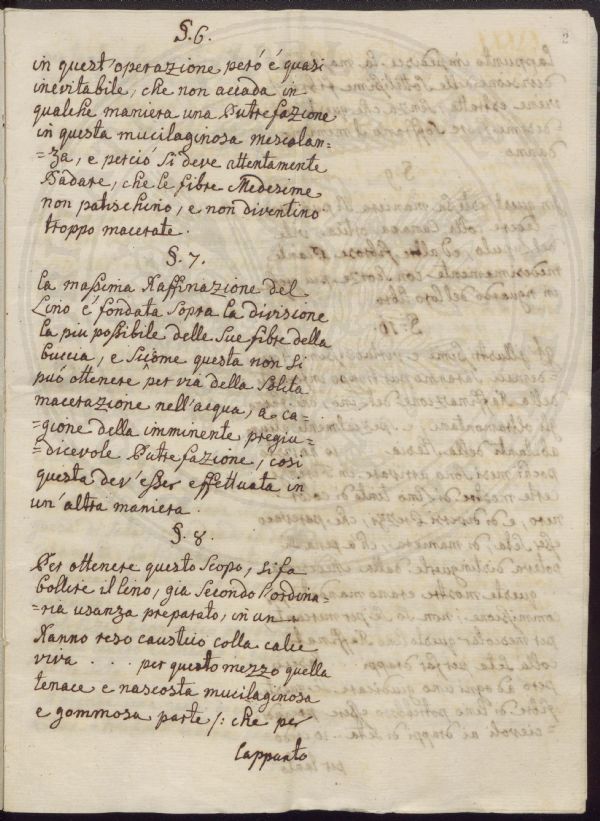 §. 6.
2
in quest'operazione peró é quasi
inevitabile, che non accada in
qualche maniera una Putrefazione
in questa mucilaginosa mescolan=
=za, e perció si deve attentamente
Badare, che le fibre Medesime
non patischino, e non diventino
troppo macerate.
§. 7.
La massima Raffinazione del
Lino é fondata sopra la divisione
la piu possibile delle Sue fibre della
buccia, e Siccome questa non Si
può ottenere per via della Solita
macerazione nell'acqua, a ca=
=gione della imminente pregiu=
=dicevole Putrefazione, cosi
questa dev'esser effettuata in
un'altra maniera.
§. 8.
Per ottenere questo Scopo, si fa
bollire il lino, gia Secondo l'ordina=
=ria usanza preparato, in un
Ranno reso caustico colla calce
viva . . . per questo mezzo quella
tenace e nascosta mucilaginosa
e gommosa parte /: che per
l'appunto